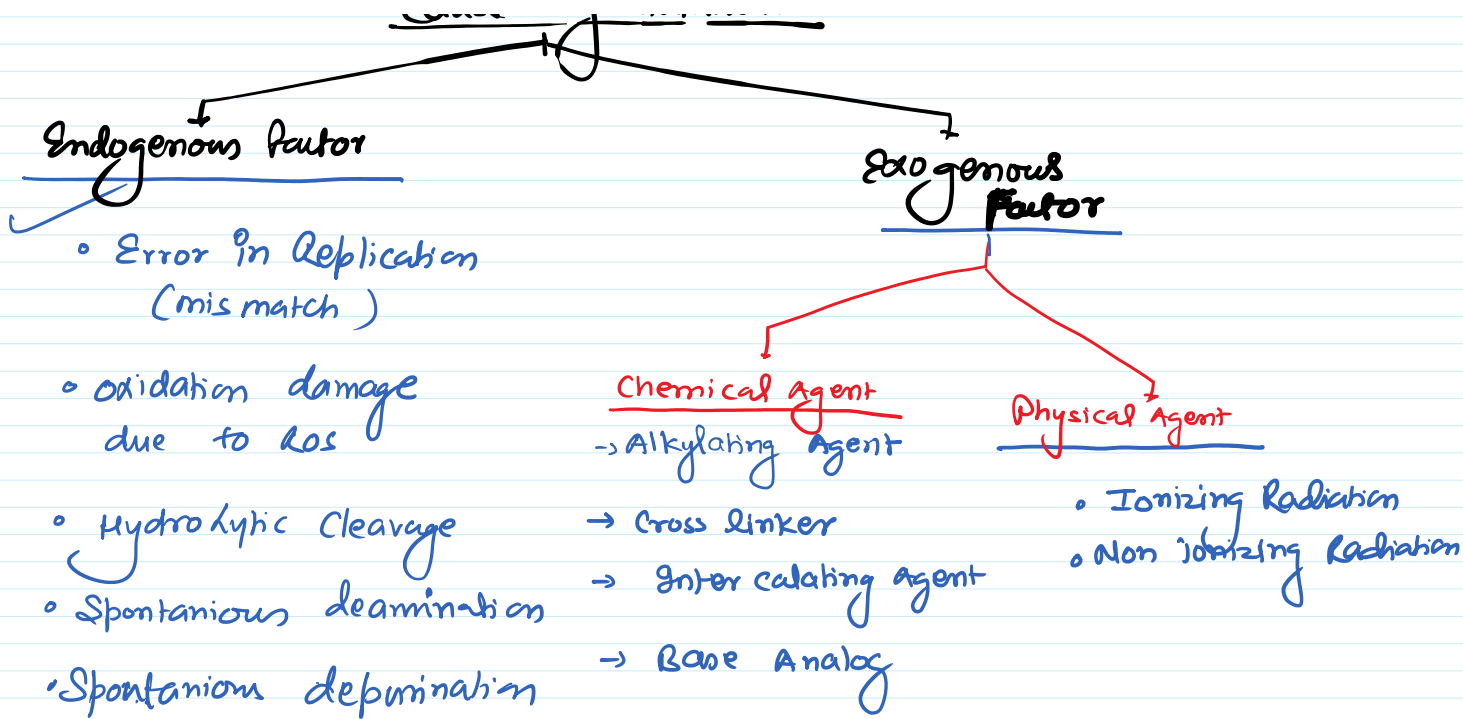 Endogenous factor
• Error in Replication
(mismatch)
• oxidation damage
due to ROS
• Hydrolytic Cleavage
• Spontanious deamination
• Spontanious depurination
Exogenous
Factor
Chemical Agent
→ Alkylating Agent
→ Cross linker
→ Inter calating Agent
→ Base Analog
Physical Agent
• Ionizing Radiation
• Non ionizing Radiation